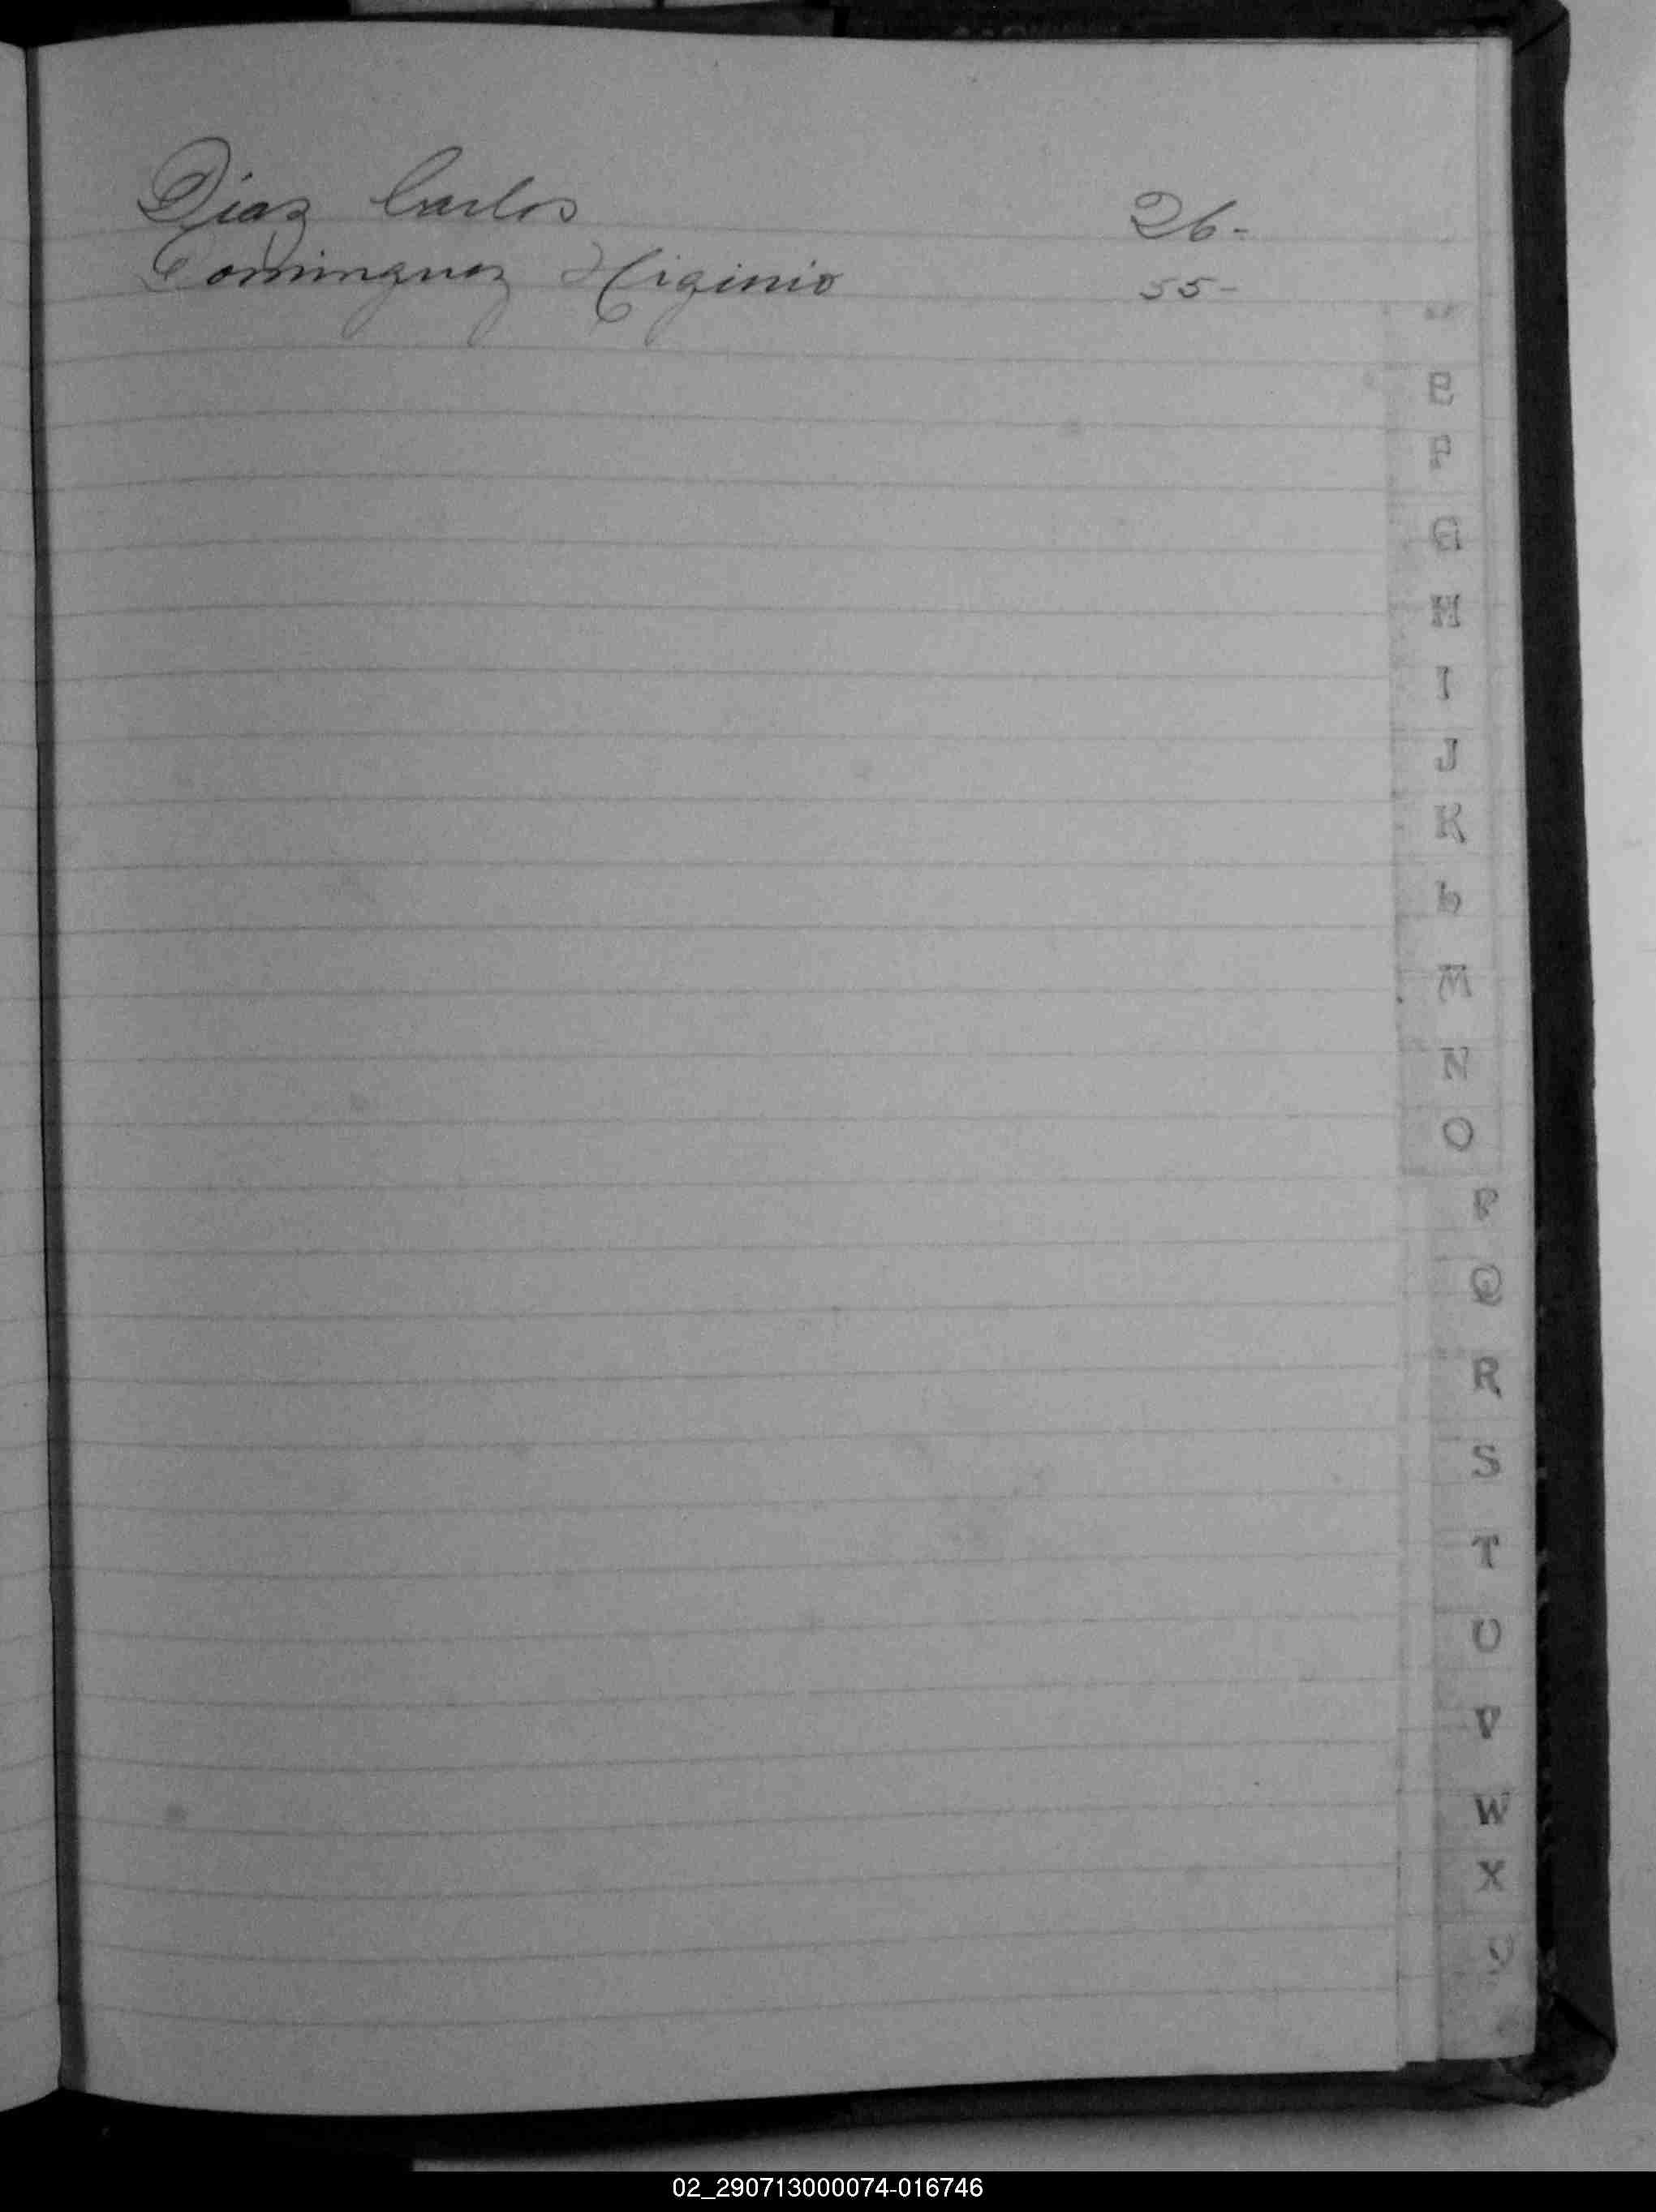 Diaz Carlos 26-
Dominguez Higinio 55-
E
F
G
H
I
J
K
L
M
N
O
P
Q
R
S
T
U
V
W
X
Y
02_290713000074-016746